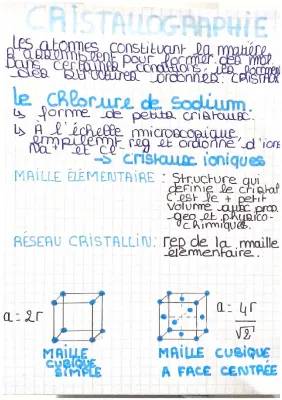 CRISTALLOGRAPHIE
Les atomes constituant la matière
s'assemblent pour former des mol
Dans certaines conditions, ils forment
des structures ordonnées, CRISTAUX
Le Chlorure de Sodium.
↳ forme de petits cristaux.
↳ A l'échelle microscopique,
empilement reg et ordonné d'ions
Na⁺ et Cl⁻
→ cristaux ioniques
MAILLE ÉLÉMENTAIRE : Structure qui
definie le cristal
C'est le + petit
volume avec pro
geo et physico-
chimiques.
RÉSEAU CRISTALLIN: rep de la maille
élémentaire.
a = 2r
MAILLE
CUBIQUE
SIMPLE
a = 4r
√2
MAILLE CUBIQUE
A FACE CENTRÉE